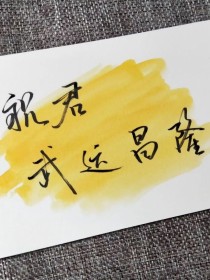 祝君
武运昌隆